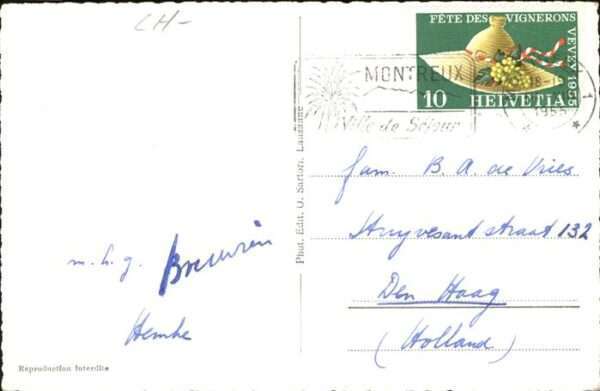 CH-
FÊTE DES VIGNERONS
VEVEY 1955
10 HELVETIA
MONTREUX
Ville de Séjour
18-1
1955
1
Phot. Edit. O. Sartori, Lausanne
Fam. B. A. de Vries
Stuyvesant straat 132
Den Haag
(Holland)
m.h.g.
Hemke
Reproduction interdite